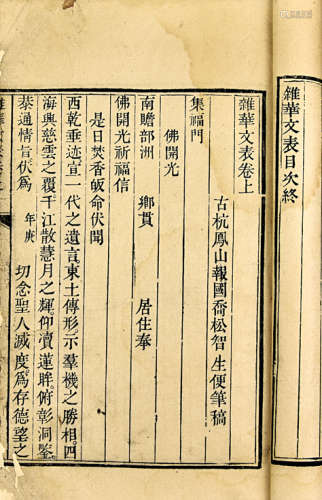 雜華文表目次終
雜華文表卷上
古杭鳳山報國喬松智生便筆稿
集福門
佛開光
南贍部洲 鄉貫 居住奉
佛開光祈福信
是日焚香皈命伏聞
西乾垂迹宣一代之遺言東土傳形示羣機之勝相。四
海興慈雲之覆千江散慧月之輝仰瀆蓮眸。俯彰洞鑒。
恭通情旨伏爲 年庚 切念聖人滅度。爲存德望之